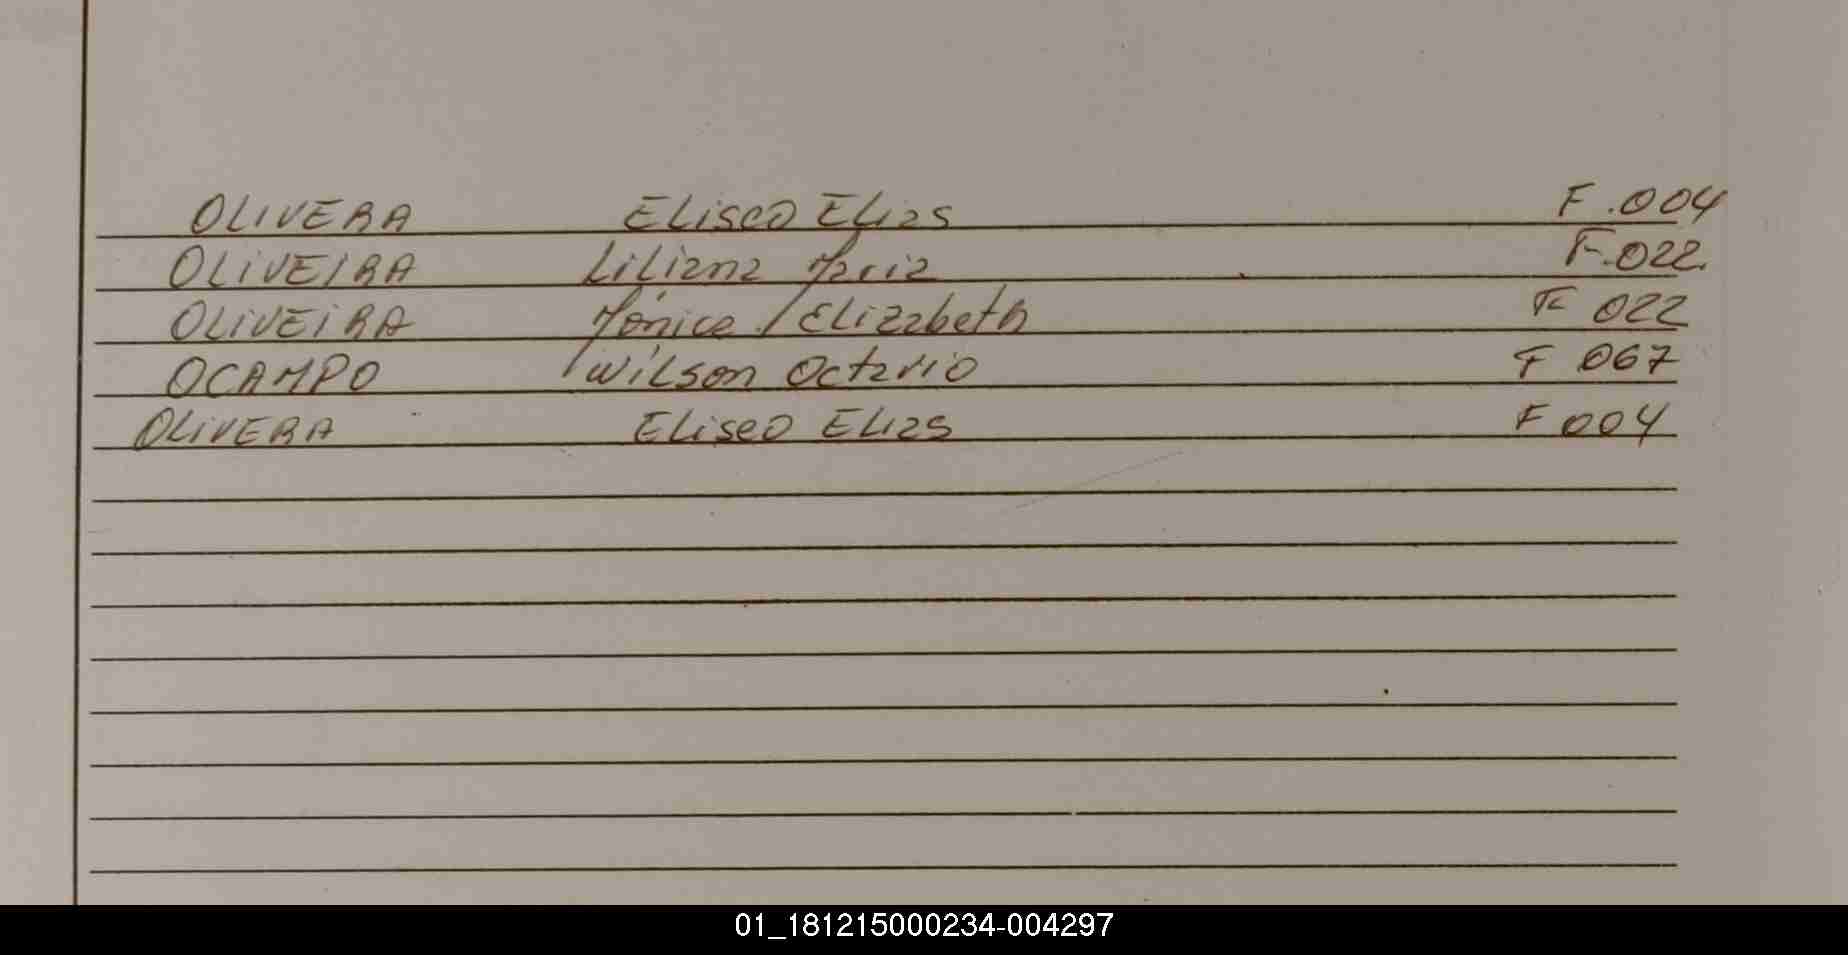 OLIVERA Eliseo Elias F.004
OLIVEIRA Liliana Maria F.022.
OLIVEIRA Mónica Elizabeth F 022
OCAMPO Wilson Octavio F 067
OLIVERA Eliseo Elias F 004
01_181215000234-004297